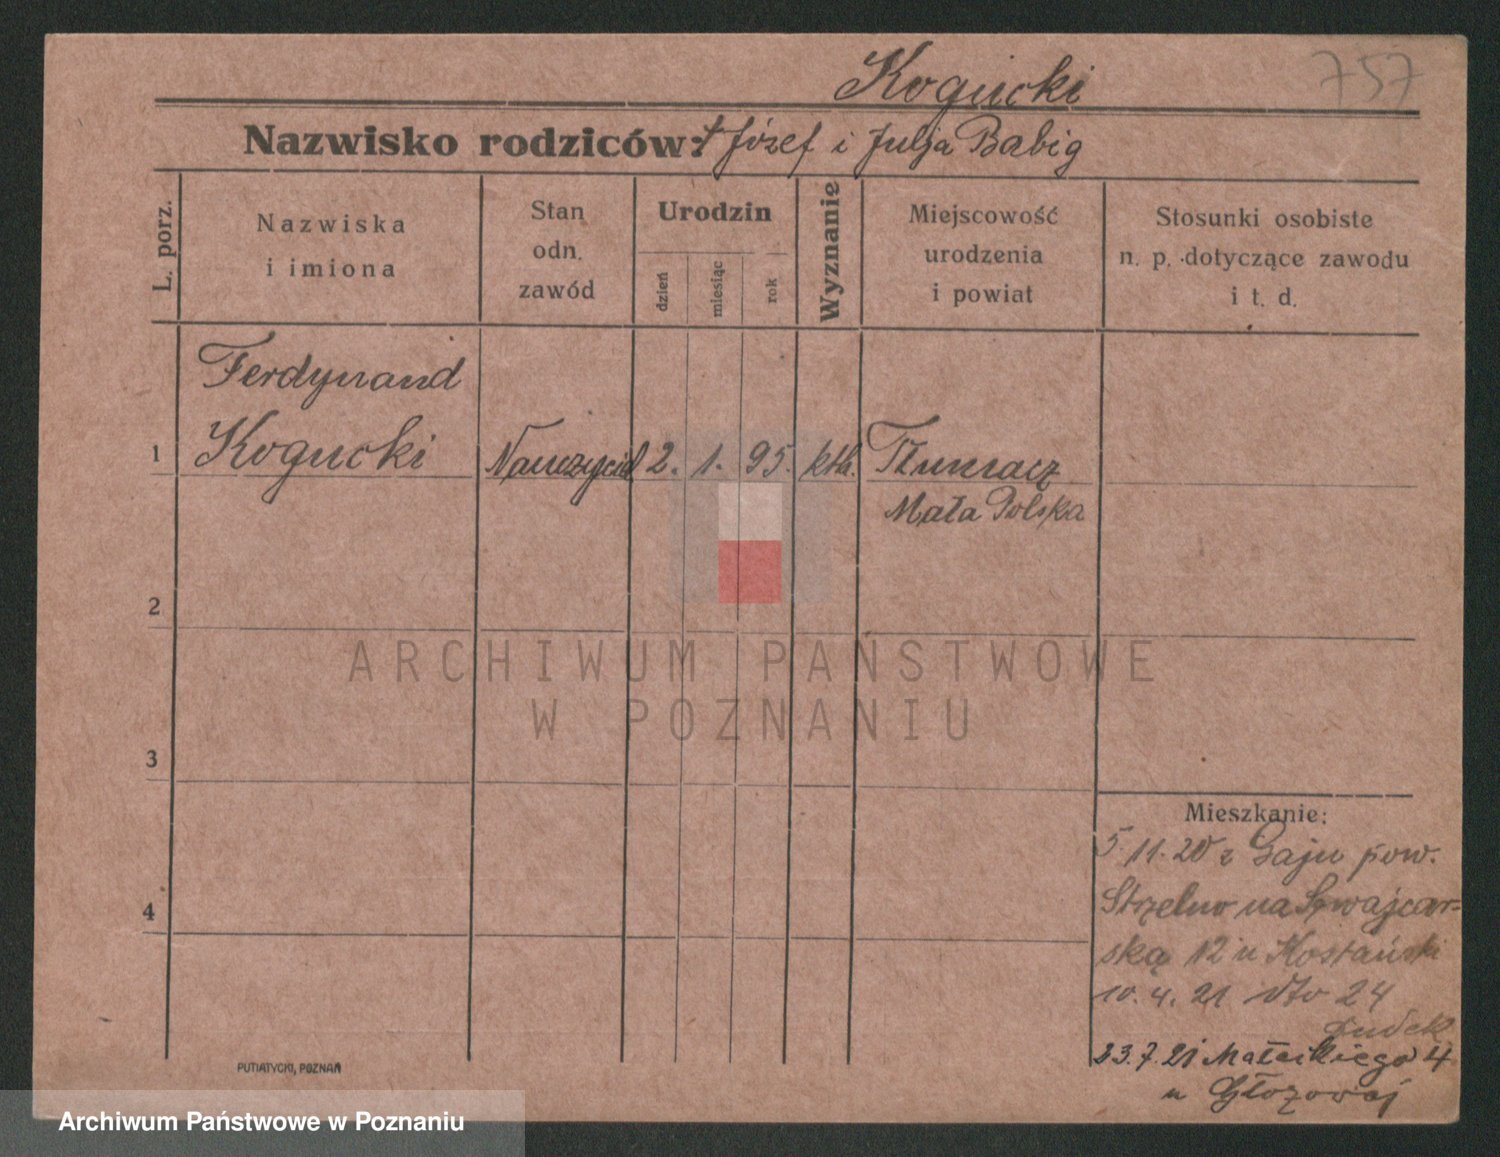 Kogucki
757
Nazwisko rodziców: † Józef i Julja Babig
L. porz.
Nazwiska
i imiona
Stan
odn.
zawód
Urodzin
dzień
miesiąc
rok
Wyznanie
Miejscowość
urodzenia
i powiat
Stosunki osobiste
n. p. dotyczące zawodu
i t. d.
Ferdynand
1 Kogucki Nauczyciel 2. 1. 95. kth. Tłumacz
Mała Polska
2
3
4
Mieszkanie:
5.11.20 z Gaju pow.
Strzelno na Szwajcar=
ską 12 u Kostański
10.4.21 dto 24
Dudek
23.7.21 Małeckiego 4
u
PUTIATYCKI, POZNAŃ
ARCHIWUM PAŃSTWOWE
W POZNANIU
Archiwum Państwowe w Poznaniu